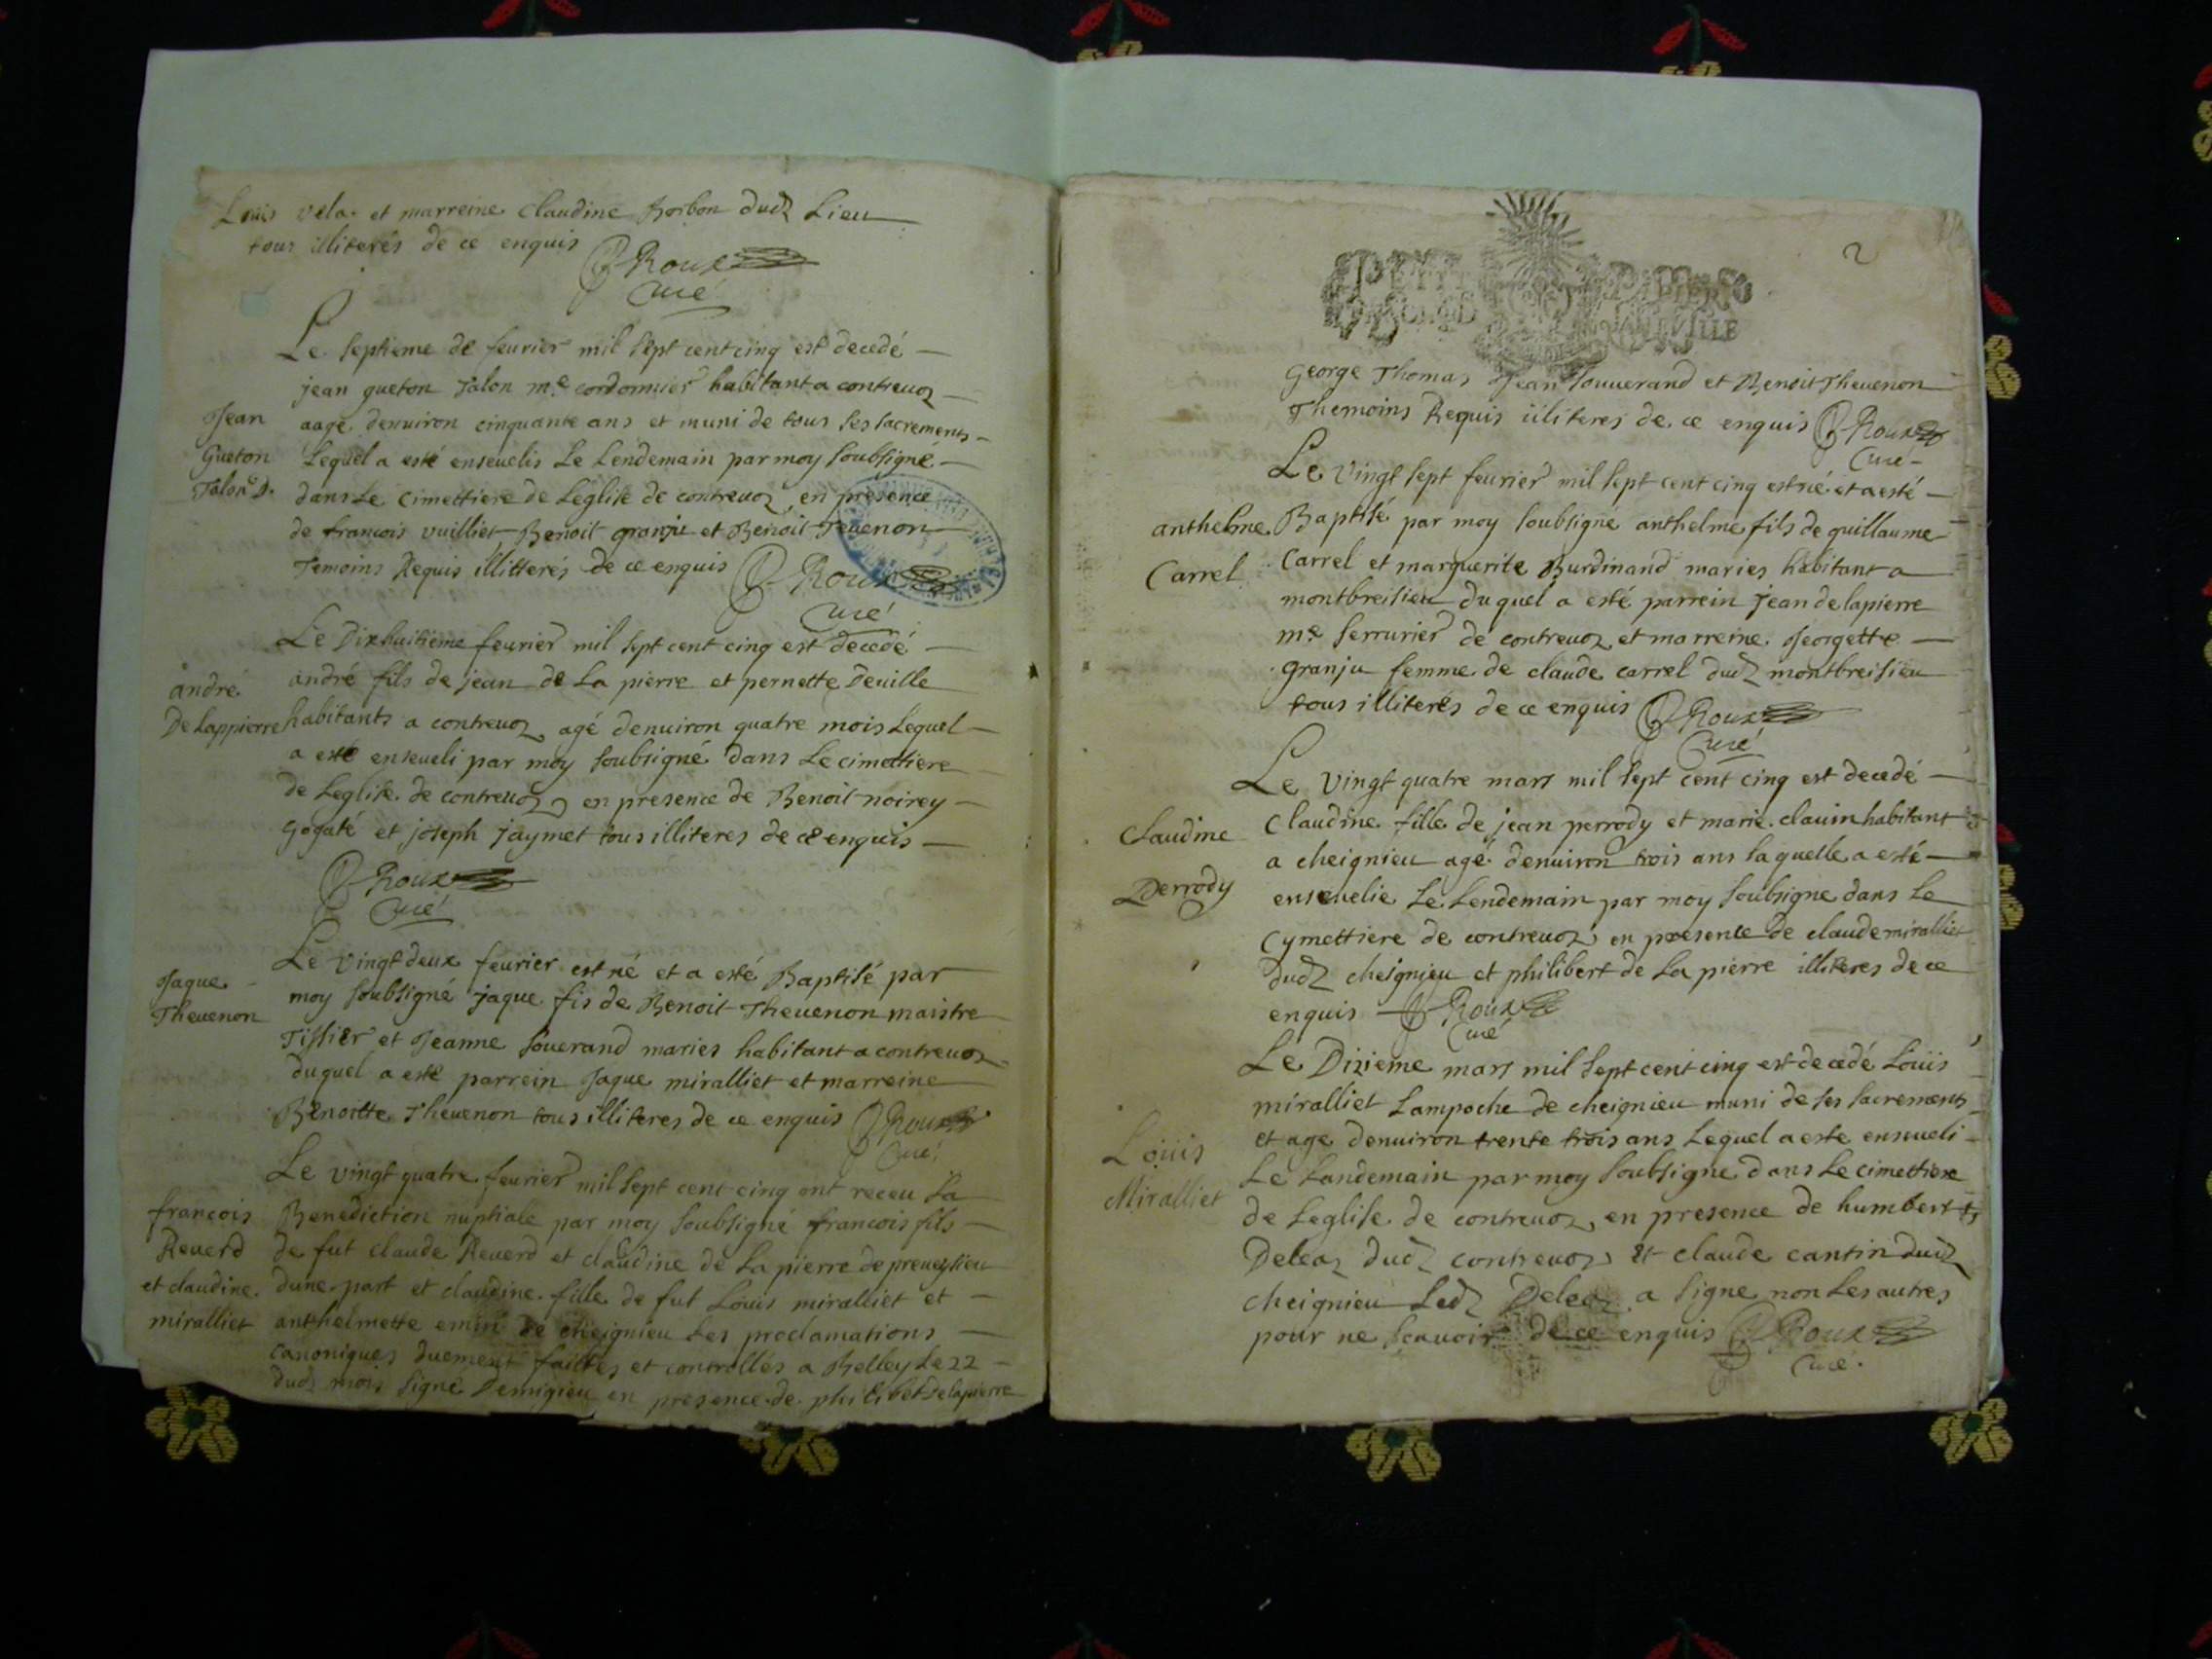 Louis vela et marreine claudine Borbon dudz Lieu
tous illiterés de ce enquis Roux
Curé
Le septieme de feurier mil sept cent cinq est decedé
jean gueton Talon me cordonnier habitant a contreuoz
aagé denuiron cinquante ans et muni de tous ses sacrements
Lequel a esté enseuelis Le Lendemain par moy soubsigné
dans Le cimettiere de Leglise de contreuoz en presence
de francois vuilliet Benoit granju et Benoit Teuenon
Temoins Requis illitterés de ce enquis Roux
Curé
Jean
Gueton
Talon D.
Le Dixhuitieme feurier mil sept cent cinq est decedé
andré fils de jean de La pierre et pernette Deuille
habitants a contreuoz agé denuiron quatre mois Lequel
a esté enseueli par moy soubsigné dans Le cimettiere
de Leglise de contreuoz en presence de Benoit noirey
Gogaté et joseph jaymet tous illiteres de ce enquis
Roux
Curé
andré
De Lappierre
Le vingt deux feurier est né et a esté Baptisé par
moy soubsigné jaque fis de Benoit Theuenon maistre
Tissier et Jeanne souerand maries habitant a contreuoz
duquel a esté parrein Jaque miralliet et marreine
Benoitte Theuenon tous illiteres de ce enquis Roux
Curé
Jaque
Theuenon
Le vingt quatre feurier mil sept cent cinq ont receu La
Benediction nuptiale par moy soubsigné francois fils
de fut claude Reuerd et claudine de La pierre de
dune part et claudine fille de fut Louis miralliet et
anthelmette emin de cheignieu Les proclamations
canoniques duement faittes et controllés a Belley Le 22
dudz mois signé Demigieu en presence de philibet Delapierre
françois
Reuerd
et claudine
miralliet
2
PETIT PAPIER
George Thomas Jean souuerand et Benoit Theuenon
Themoins Requis illiteres de ce enquis Roux
Curé
Le vingt sept feurier mil sept cent cinq est né et a esté
Baptisé par moy soubsigné anthelme fils de guillaume
Carrel et marguerite Burdinand maries habitant a
montbreisieu duquel a esté parrein Jean de lapierre
me serrurier de contreuoz et marreine Jeorgette
granju femme de claude carrel dudz montbreisieu
tous illiterés de ce enquis Roux
Curé
anthelme
Carrel
Le vingt quatre mars mil sept cent cinq est decedé
claudine fille de jean perrody et marie clauin habitant
a cheignieu agé denuiron trois ans laquelle a esté
enseuelie Le Lendemain par moy soubsigne dans Le
Cymettiere de contreuoz en presence de claude miralliet
dudz cheignieu et philibert de La pierre illiteres de ce
enquis Roux
Curé
Claudine
Perrody
Le Dizieme mars mil sept cent cinq est decedé Louis
miralliet Lampoche de cheignieu muni de ses sacrements
et age denuiron trente trois ans Lequel a este enseueli
Le Landemain par moy soubsigne dans Le cimettiere
de Leglise de contreuoz en presence de humbert
Deleaz dudz contreuoz et claude cantin dudz
cheignieu Ledz Deleaz a signe non Les autres
pour ne scauoir de ce enquis Roux
Curé
Louis
Miralliet